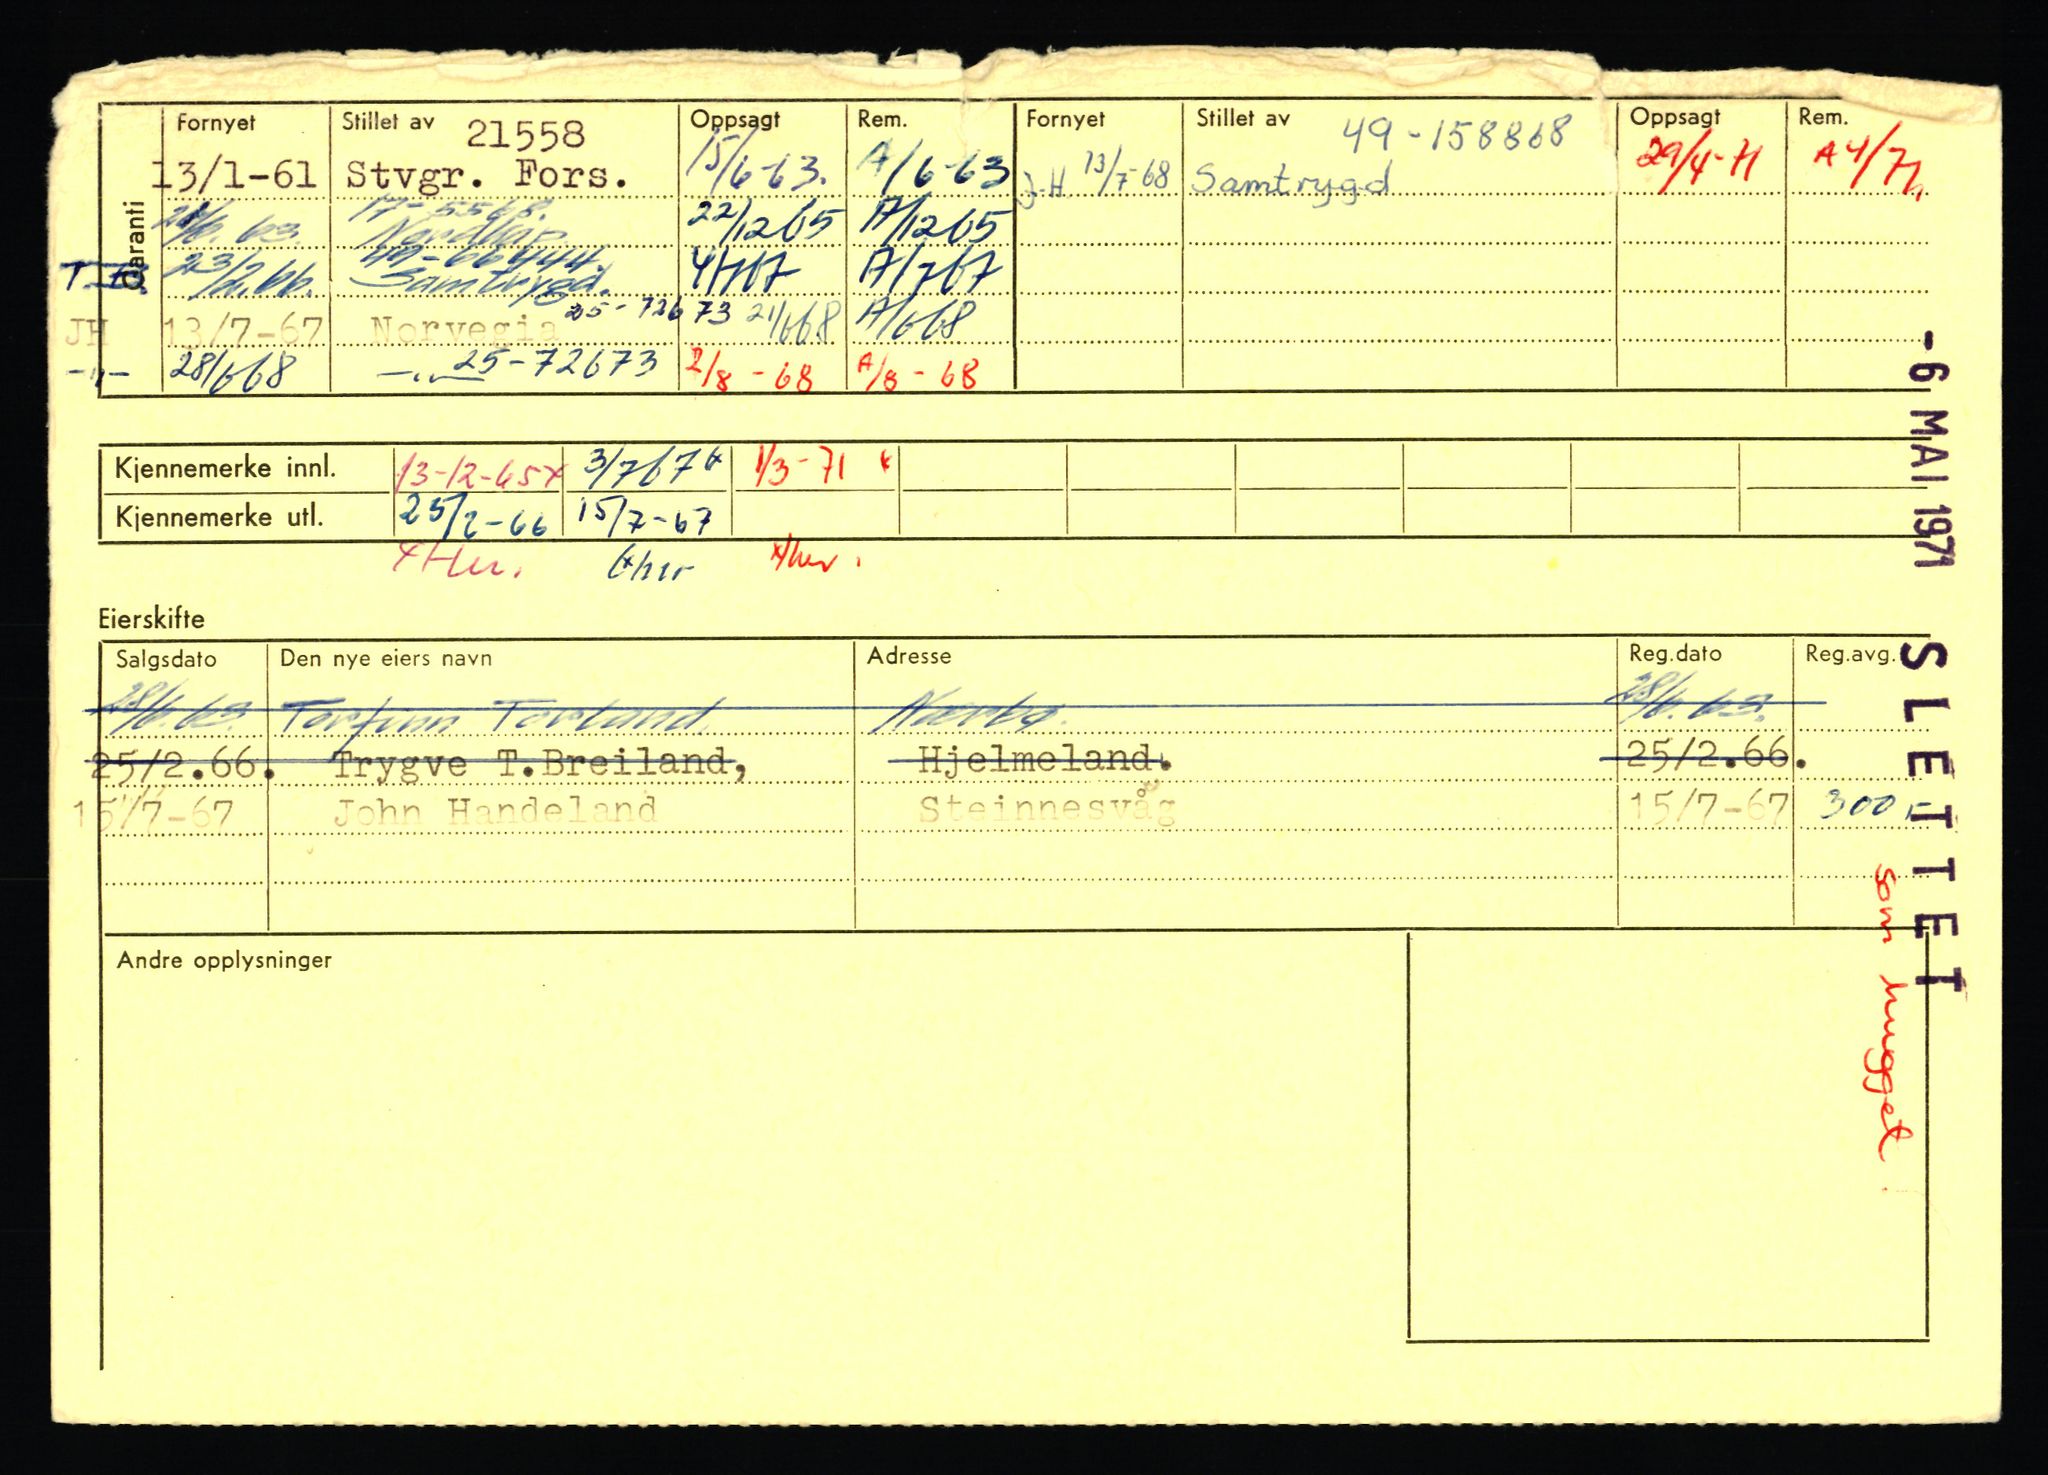 Garanti
Fornyet Stillet av 21558 Oppsagt Rem. Fornyet Stillet av 49-158868 Oppsagt Rem.
13/1-61 Stvgr. Fors. 15/6-63. A/6-63 J-H 13/7-68 Samtrygd 29/4-71 A 4/71
28/6.63. 17-5568. Nordlys 22/1265 A/1265
T.B. 23/2.66. 49-66444. Samtrygd. 4/767 A/767
JH 13/7-67 Norvegia 25-72673 21/668 A/668
-"- 28/668 -"- 25-72673 2/8-68 A/8-68
Kjennemerke innl. 13-12-65x 3/767x 1/3-71 x
Kjennemerke utl. 25/2-66 15/7-67
x Her. x her x her.
Eierskifte
Salgsdato Den nye eiers navn Adresse Reg.dato Reg.avg.
28/6.63. Torfinn Torland. Nærbø. 28/6.63.
25/2.66. Trygve T.Breiland, Hjelmeland. 25/2.66.
15/7-67 John Handeland Steinnesvåg 15/7-67 300,-
Andre opplysninger
-6 MAI 1971
SLETTET
som hugget.